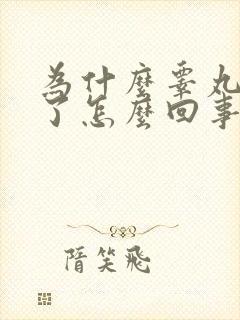 為什麼睪丸
了怎麼回事
隋笑飛